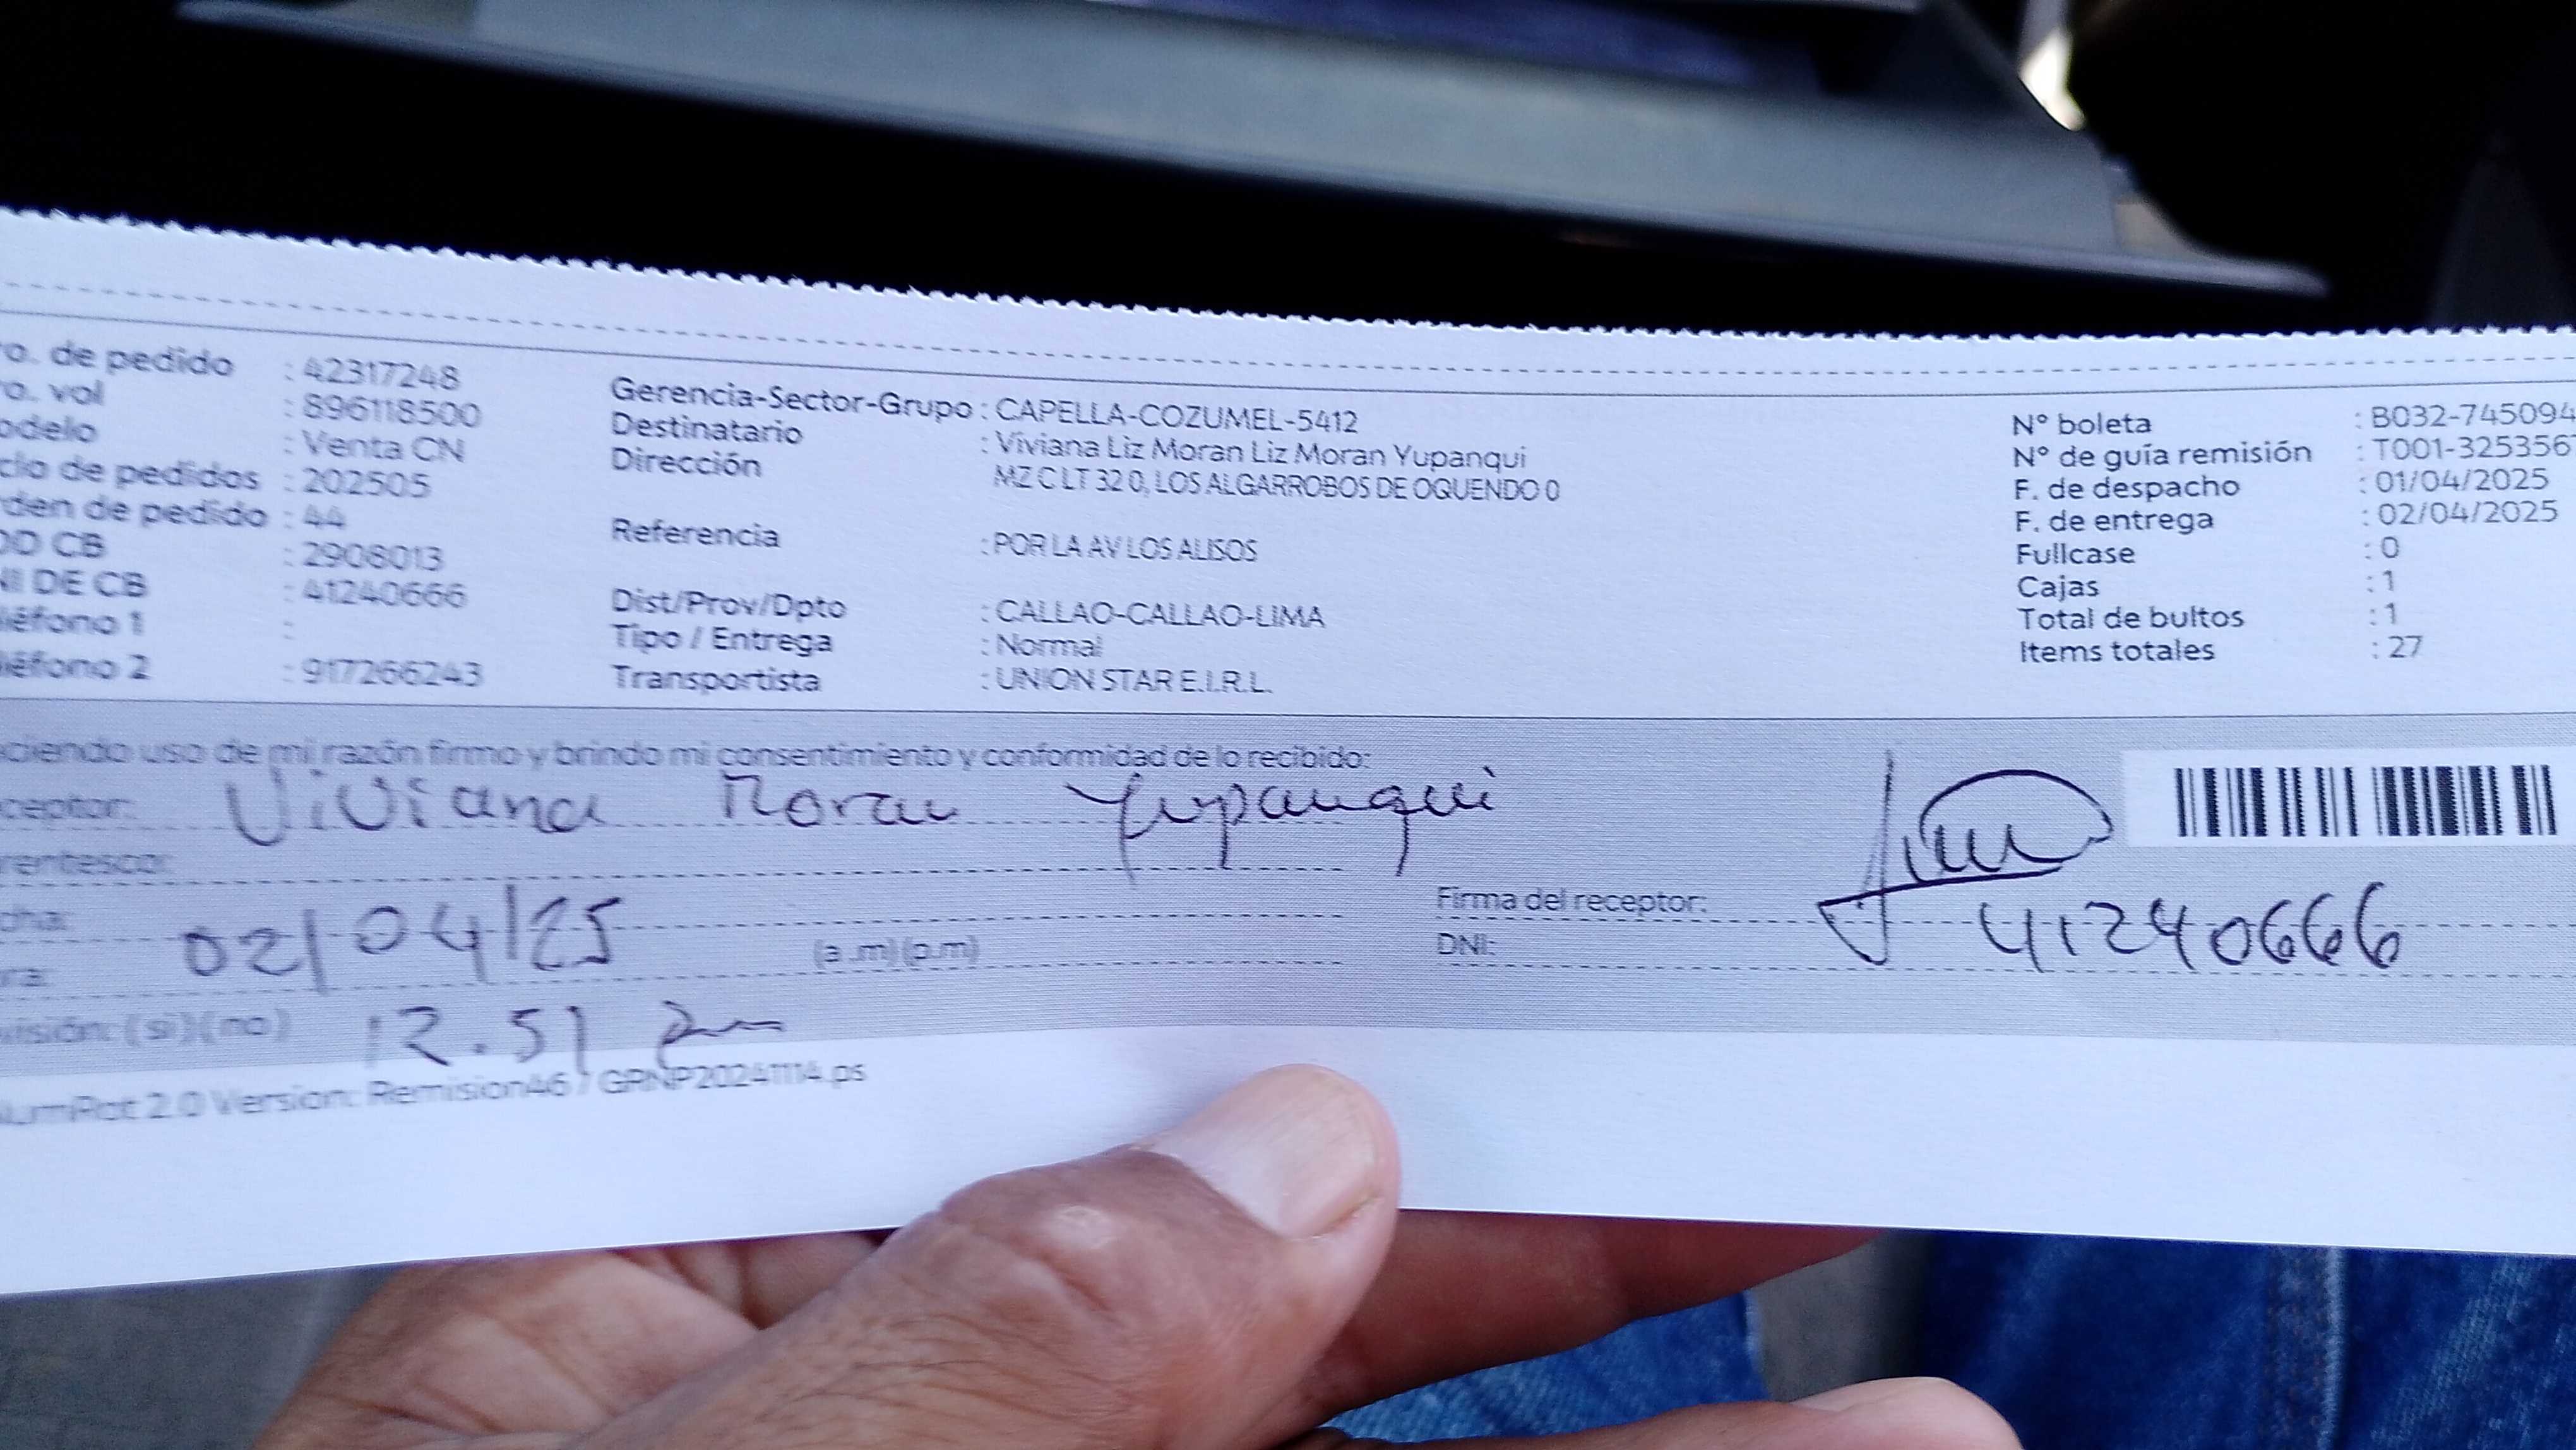 o. de pedido : 42317248
o. vol : 896118500
odelo : Venta CN
clo de pedidos : 202505
den de pedido : 44
OD CB : 2908013
NI DE CB : 41240666
léfono 1 :
léfono 2 : 917266243
Gerencia-Sector-Grupo : CAPELLA-COZUMEL-5412
Destinatario : Viviana Liz Moran Liz Moran Yupanqui
Dirección MZ C LT 32 0, LOS ALGARROBOS DE OQUENDO 0
Referencia : POR LA AV LOS ALISOS
Dist/Prov/Dpto : CALLAO-CALLAO-LIMA
Tipo / Entrega : Normal
Transportista : UNION STAR E.I.R.L.
N° boleta : B032-745094
N° de guía remisión : T001-3253567
F. de despacho : 01/04/2025
F. de entrega : 02/04/2025
Fullcase : 0
Cajas : 1
Total de bultos : 1
Items totales : 27
ciendo uso de mi razón firmo y brindo mi consentimiento y conformidad de lo recibido:
ceptor: Viviana Moran Yupanqui
rentesco:
cha: 02/04/25
ra: (a.m)(p.m)
visión: (si)(no) 12.51 pm
Firma del receptor:
DNI: 41240666
umRot 2.0 Version: Remision46 / GRNP20241114.ps